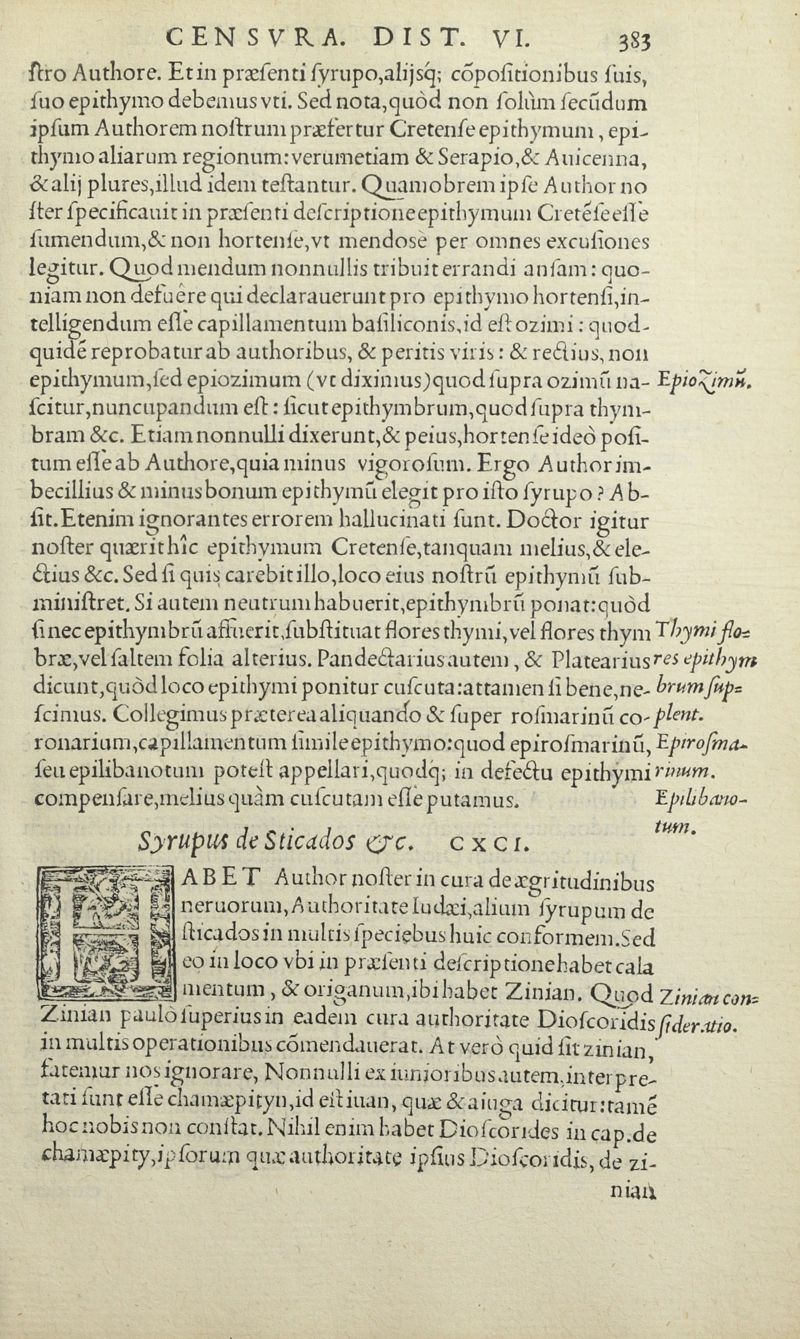 CENSVRA. DIST. VI. 383
ſtro Authore. Et in præſenti ſyrupo,alijsq́; cõpoſitionibus ſuis,
ſuo epithymo debemus vti. Sed nota,quòd non ſolùm ſecũdum
ipſum Authorem noſtrum præfertur Cretenſe epithymum, epi-
thymo aliarum regionum: verumetiam & Serapio,& Auicenna,
& alij plures,illud idem teſtantur. Quamobrem ipſe Author no
ſter ſpecificauit in præſenti deſcriptione epithymum Cretẽſe eſſe
ſumendum,& non hortenſe,vt mendosè per omnes excuſiones
legitur. Quod mendum nonnullis tribuit errandi anſam: quo-
niam non defuêre qui declarauerunt pro epithymo hortenſi,in-
telligendum eſſe capillamentum baſiliconis,id eſt ozimi: quod-
quidẽ reprobatur ab authoribus, & peritis viris: & rectius, non
epithymum,ſed epiozimum (vt diximus)quod ſupra ozimũ na- Epiozimũ.
ſcitur,nuncupandum eſt: ſicut epithymbrum,quod ſupra thym-
bram &c. Etiam nonnulli dixerunt,& peius,hortenſe ideò poſi-
tum eſſe ab Authore,quia minus vigoroſum. Ergo Author im-
becillius & minus bonum epithymũ elegit pro iſto ſyrupo? Ab-
ſit. Etenim ignorantes errorem hallucinati ſunt. Doctor igitur
noſter quærit hîc epithymum Cretenſe,tanquam melius,& ele-
ctius &c. Sed ſi quis carebit illo,loco eius noſtrũ epithymũ ſub-
miniſtret. Si autem neutrum habuerit,epithymbrũ ponat: quòd
ſi nec epithymbrũ affuerit,ſubſtituat flores thymi,vel flores thym Thymi flo-
bræ,vel ſaltem folia alterius. Pandectarius autem, & Platearius res epithym
dicunt,quòd loco epithymi ponitur cuſcuta: attamen ſi bene,ne- brum ſup-
ſcimus. Collegimus præterea aliquando & ſuper roſmarinũ co- plent.
ronarium,capillamentum ſimile epithymo: quod epiroſmarinũ, Epiroſma-
ſeu epilibanotum poteſt appellari,quodq; in defectu epithymi rinum.
compenſare,melius quàm cuſcutam eſſe putamus. Epilibano-
tum.
Syrupus de Sticados &c. CXCI.
HABET Author noſter in cura de ægritudinibus
neruorum,Authoritate Iudæi,alium ſyrupum de
ſticados in multis ſpeciebus huic conformem. Sed
eo in loco vbi in præſenti deſcriptione habet cala
mentum, & origanum,ibi habet Zinian. Quod Zinian con-
Zinian paulò ſuperius in eadem cura authoritate Dioſcoridis ſideratio.
in multis operationibus cõmendauerat. At verò quid ſit zinian,
fatemur nos ignorare, Nonnulli ex iunioribus autem,interpre-
tati ſunt eſſe chamæpityn,id eſt iuan, quæ & aiuga dicitur: tamẽ
hoc nobis non conſtat. Nihil enim habet Dioſcorides in cap. de
chamæpity,ipſorum quæ authoritate ipſius Dioſcoridis, de zi-
nian